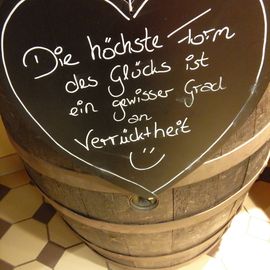 Die höchste Form
des Glücks ist
ein gewisser Grad
an
Verrücktheit